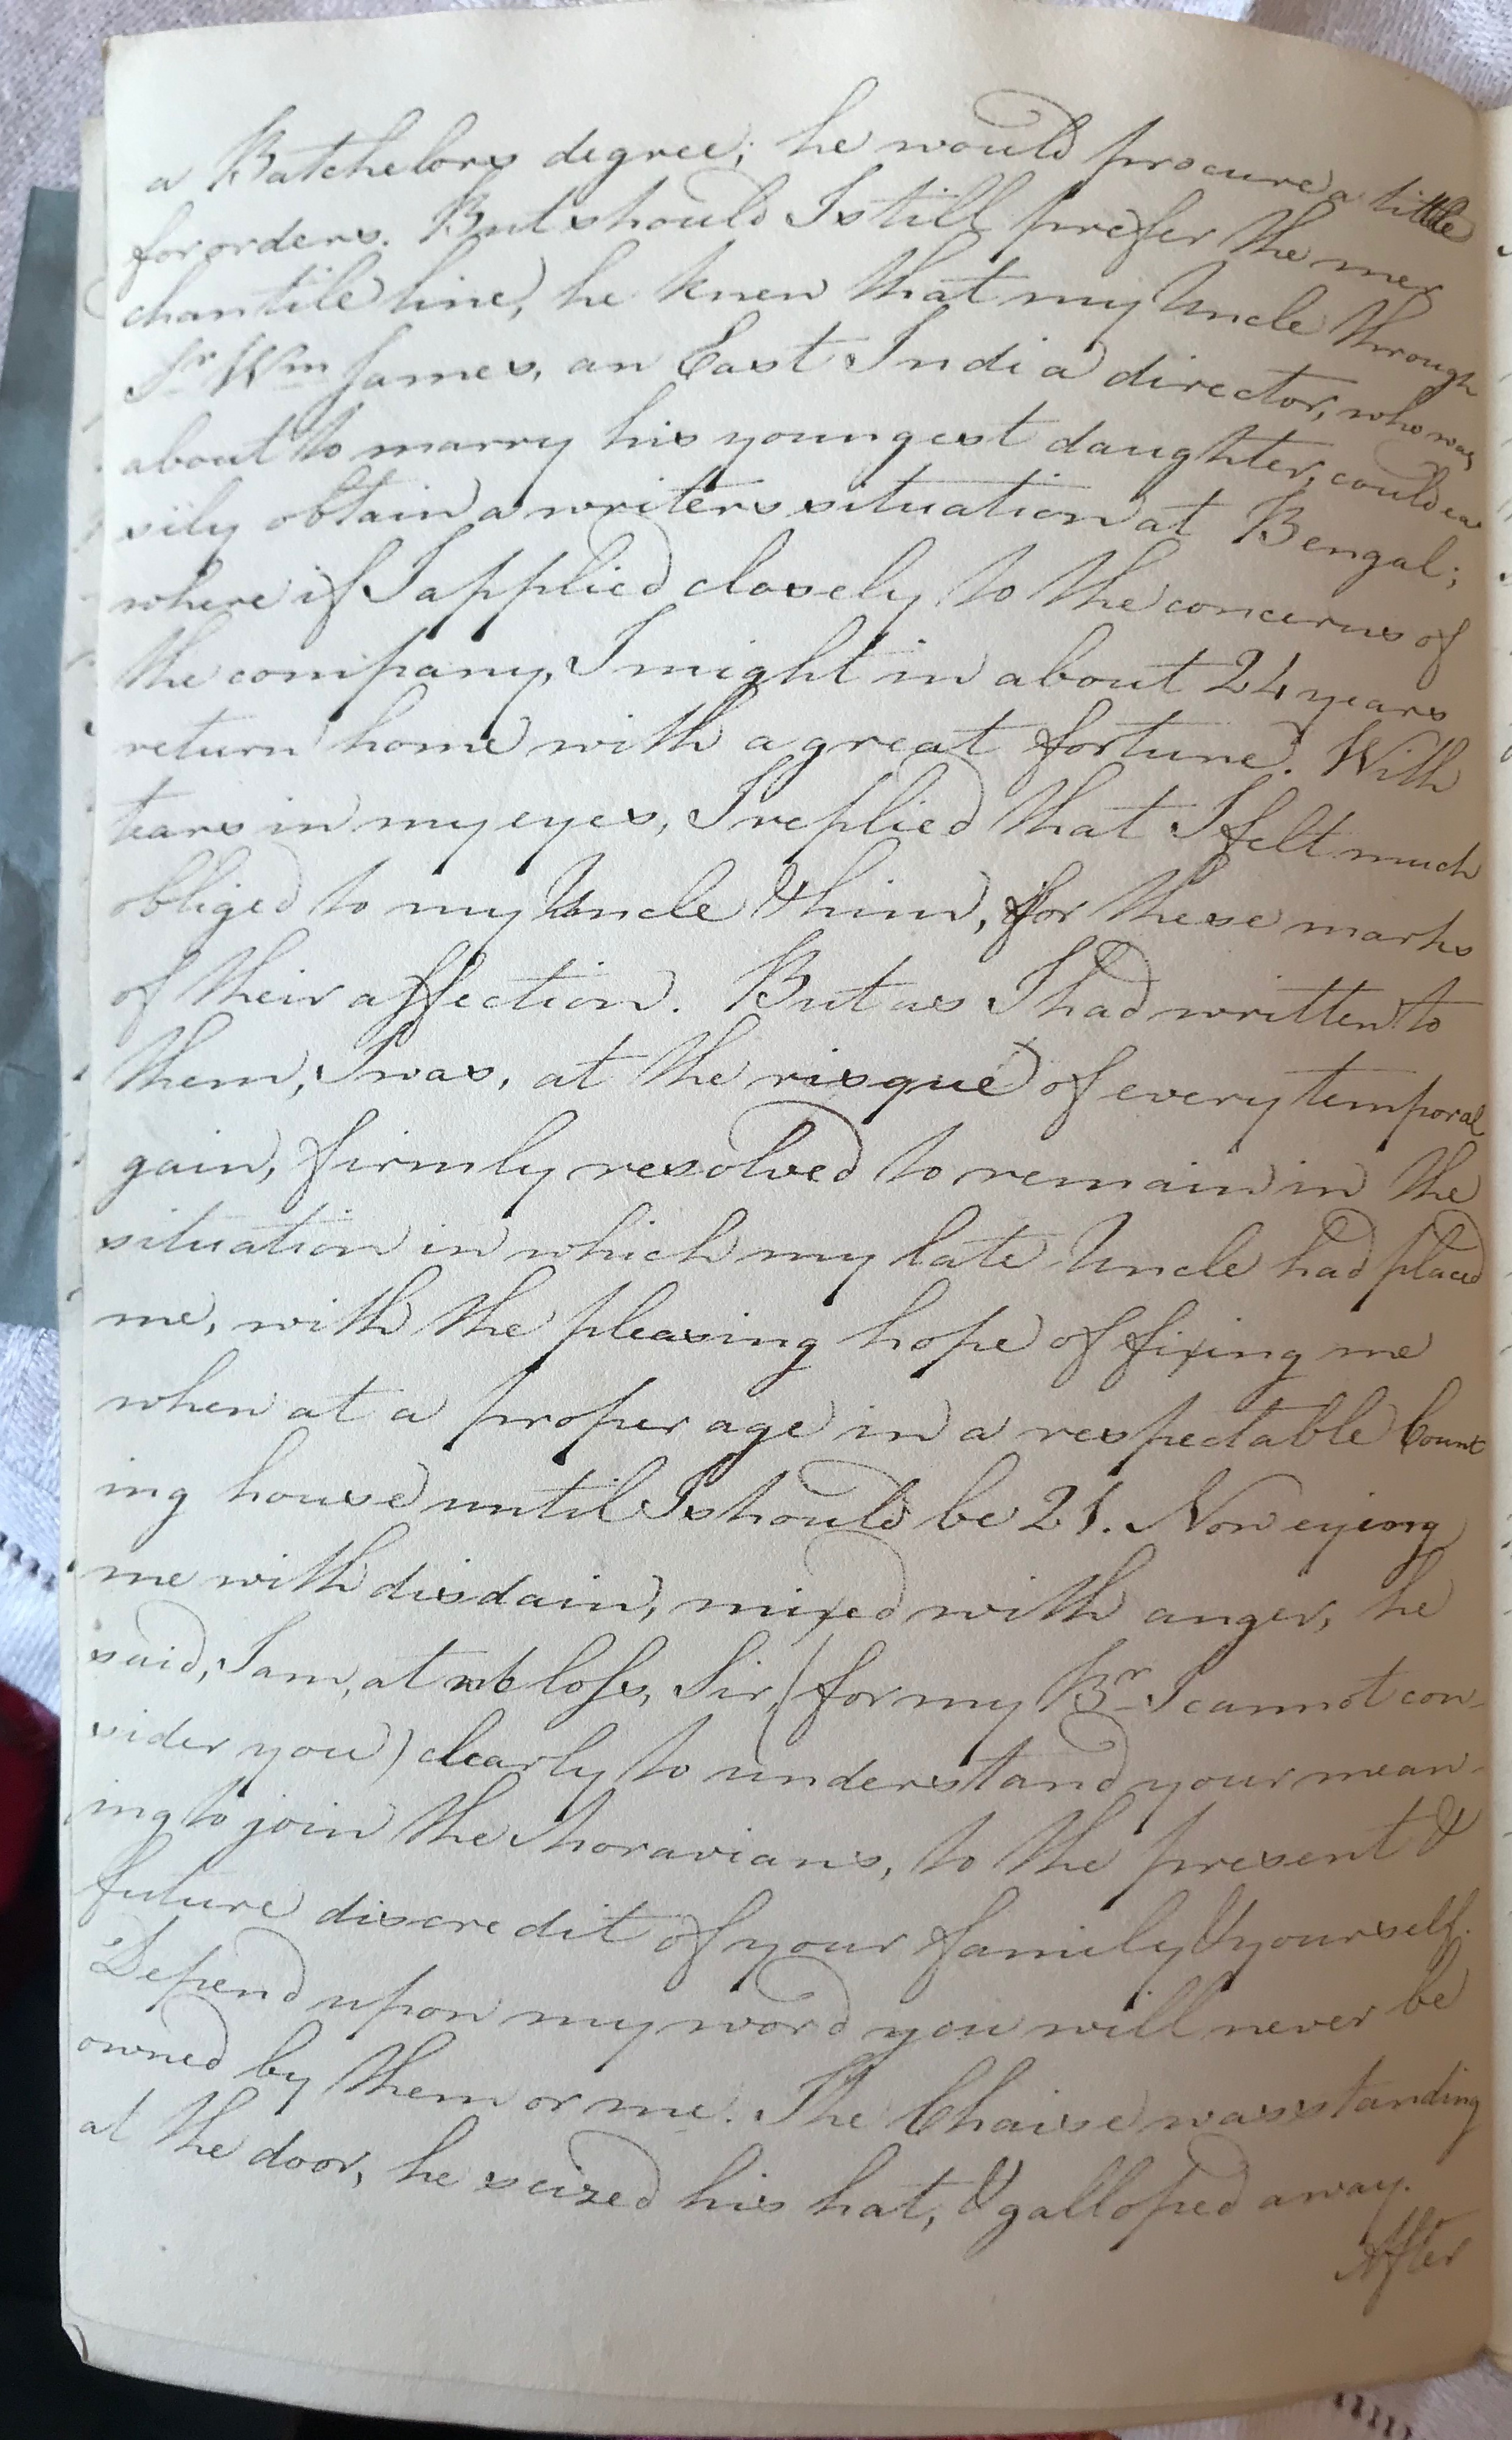 a Batchelors degree; he would procure a tittle
for orders. But should I still prefer the mer
chantile line, he knew that my Uncle through
Sr. Wm James, an East India director, who was
about to marry his youngest daughter, could ea
sily obtain a writers situation at Bengal;
where if I applied closely to the concerns of
the company, I might in about 24 years
return home with a great fortune. With
tears in my eyes, I replied that I felt much
obliged to my Uncle & him, for these marks
of their affection. But as I had written to
them, I was, at the risque of every temporal
gain, firmly resolved to remain in the
situation in which my late Uncle had placed
me, with the pleasing hope of fixing me
when at a proper age in a respectable Count
ing house until I should be 21. Now eyeing
me with disdain, mixed with anger, he
said, I am, at no loss, Sir, (for my Br. I cannot con-
sider you) clearly to understand your mean-
ing to join the Moravians, to the present &
future discredit of your family & yourself.
Depend upon my word you will never be
owned by them or me. The Chaise was standing
at the door, he seized his hat, & galloped away.
After